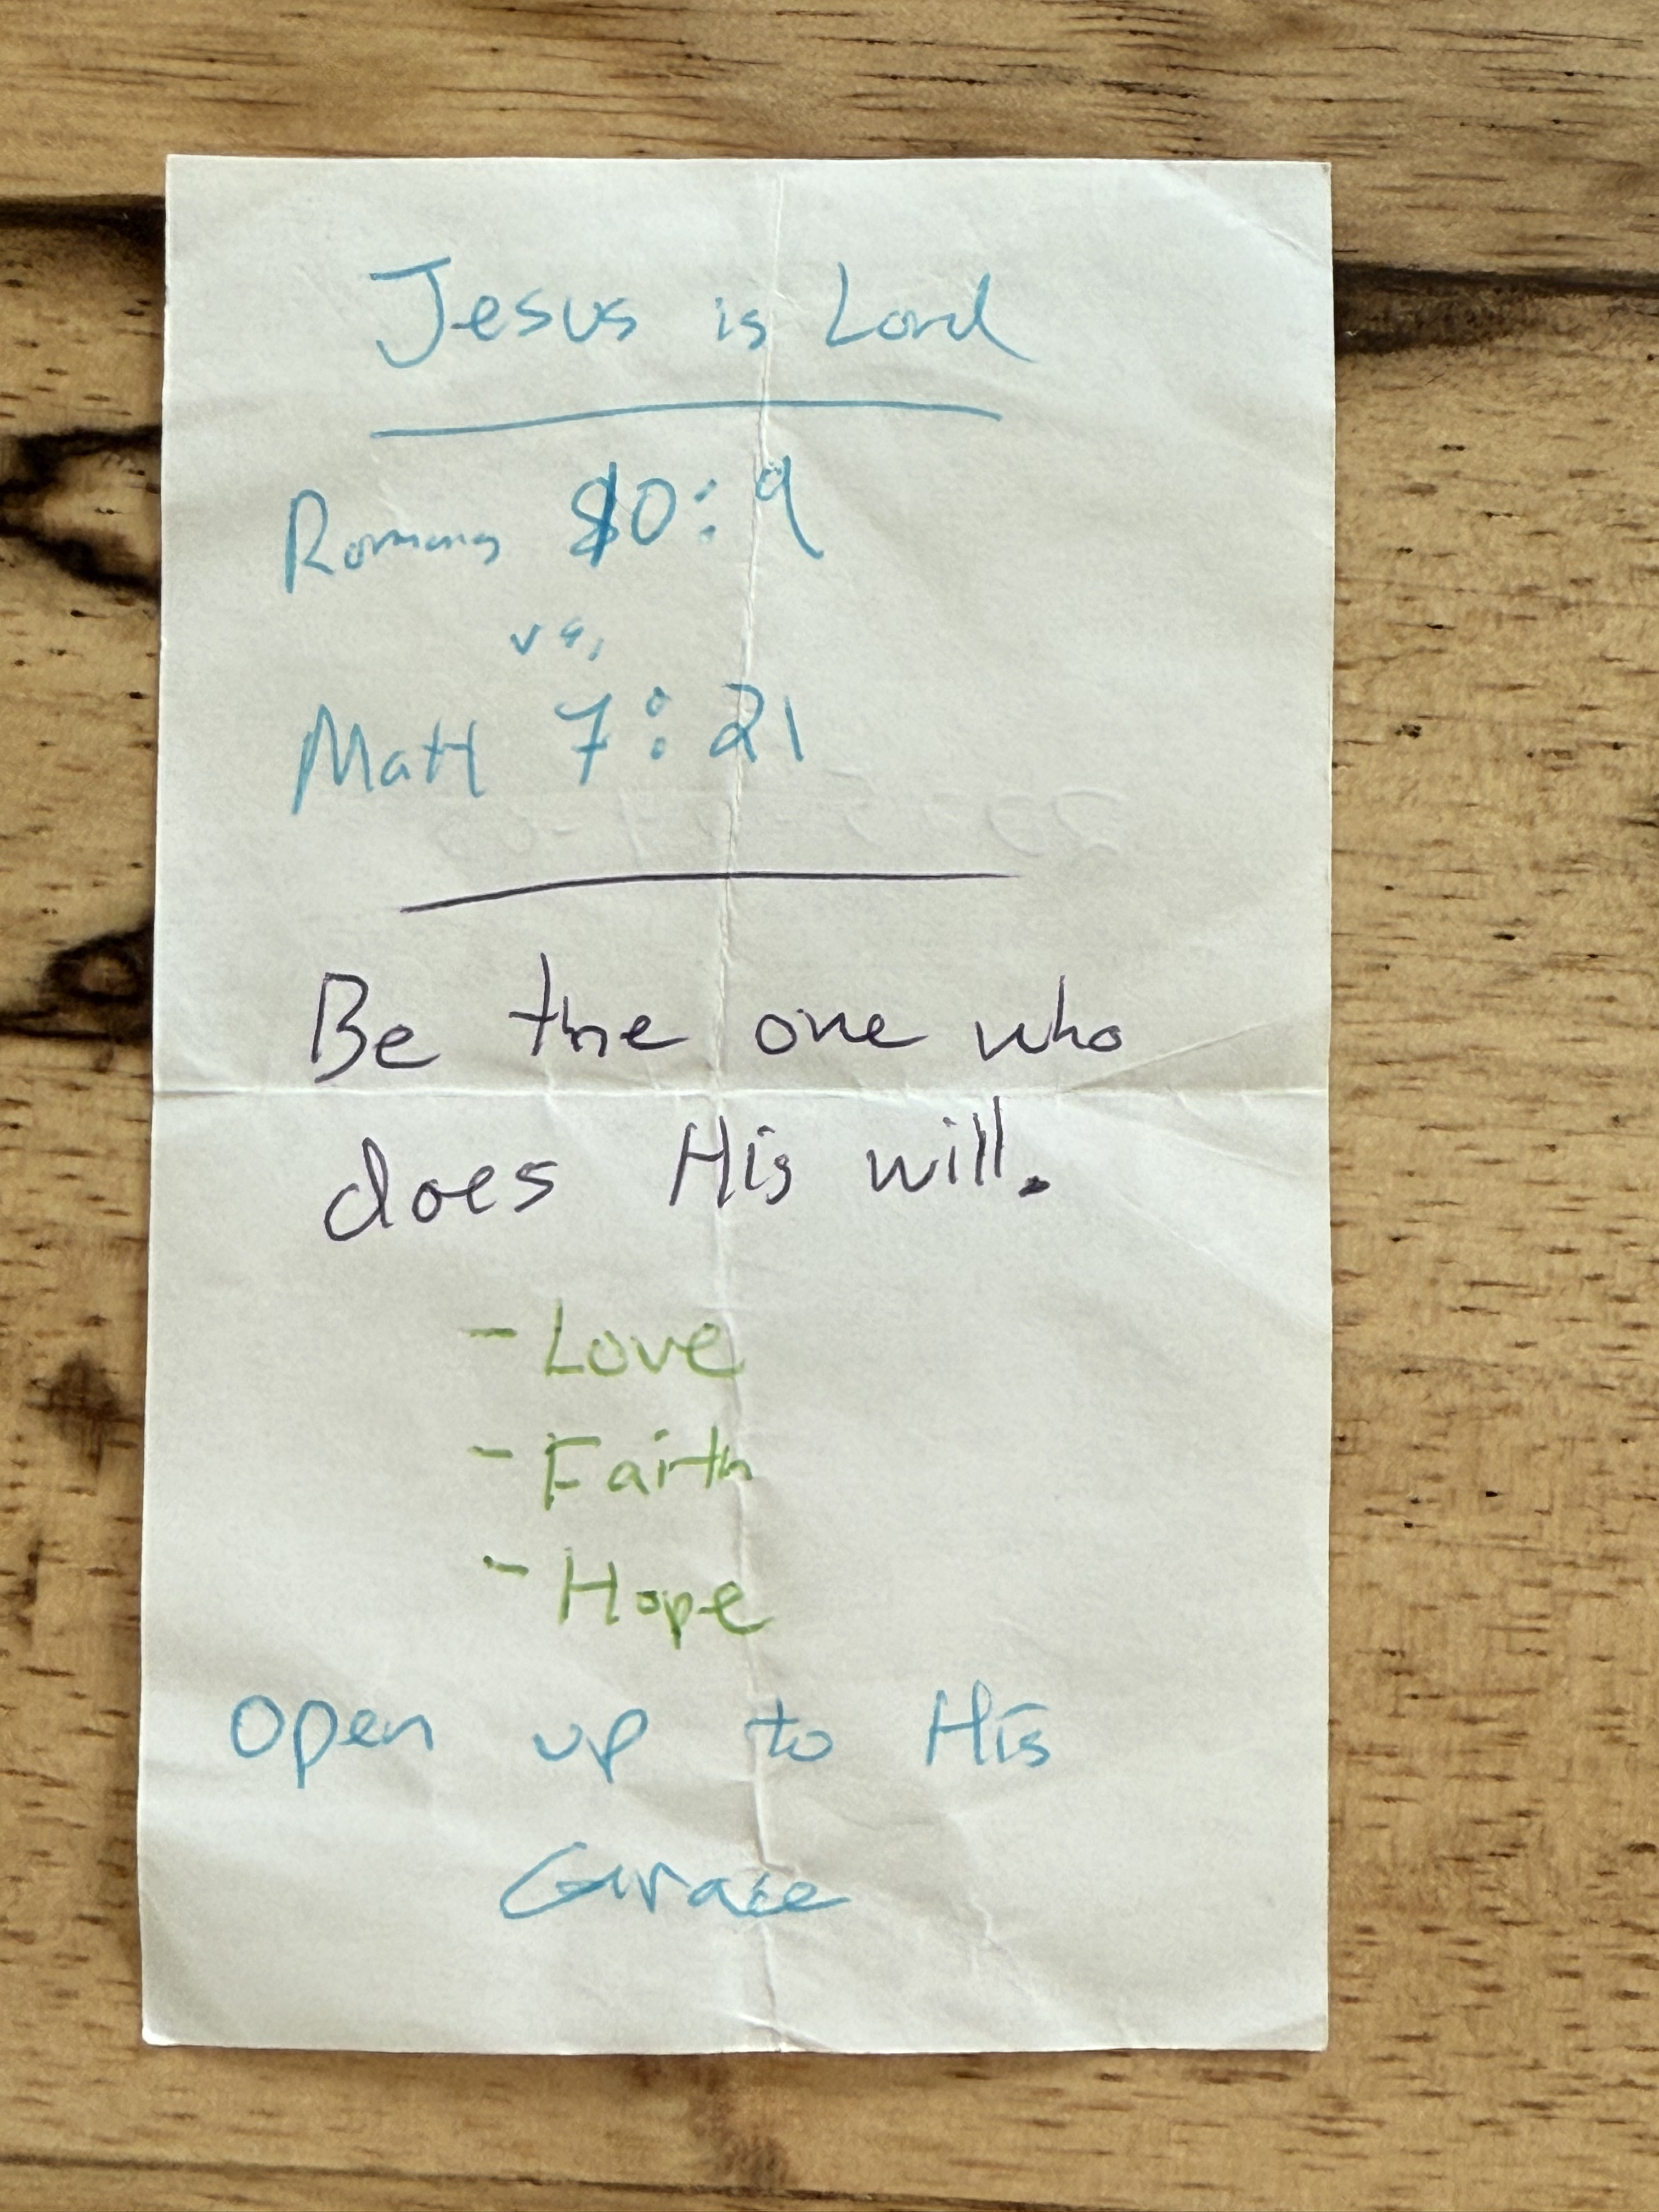 Jesus is Lord
Romans 10:9
vs.
Matt 7:21
Be the one who
does His will.
- Love
- Faith
- Hope
Open up to His
Grace